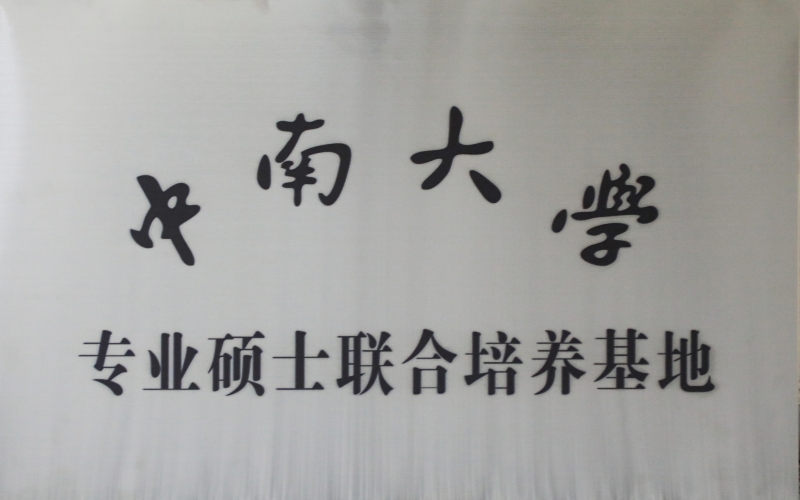 中南大學
专业硕士联合培养基地